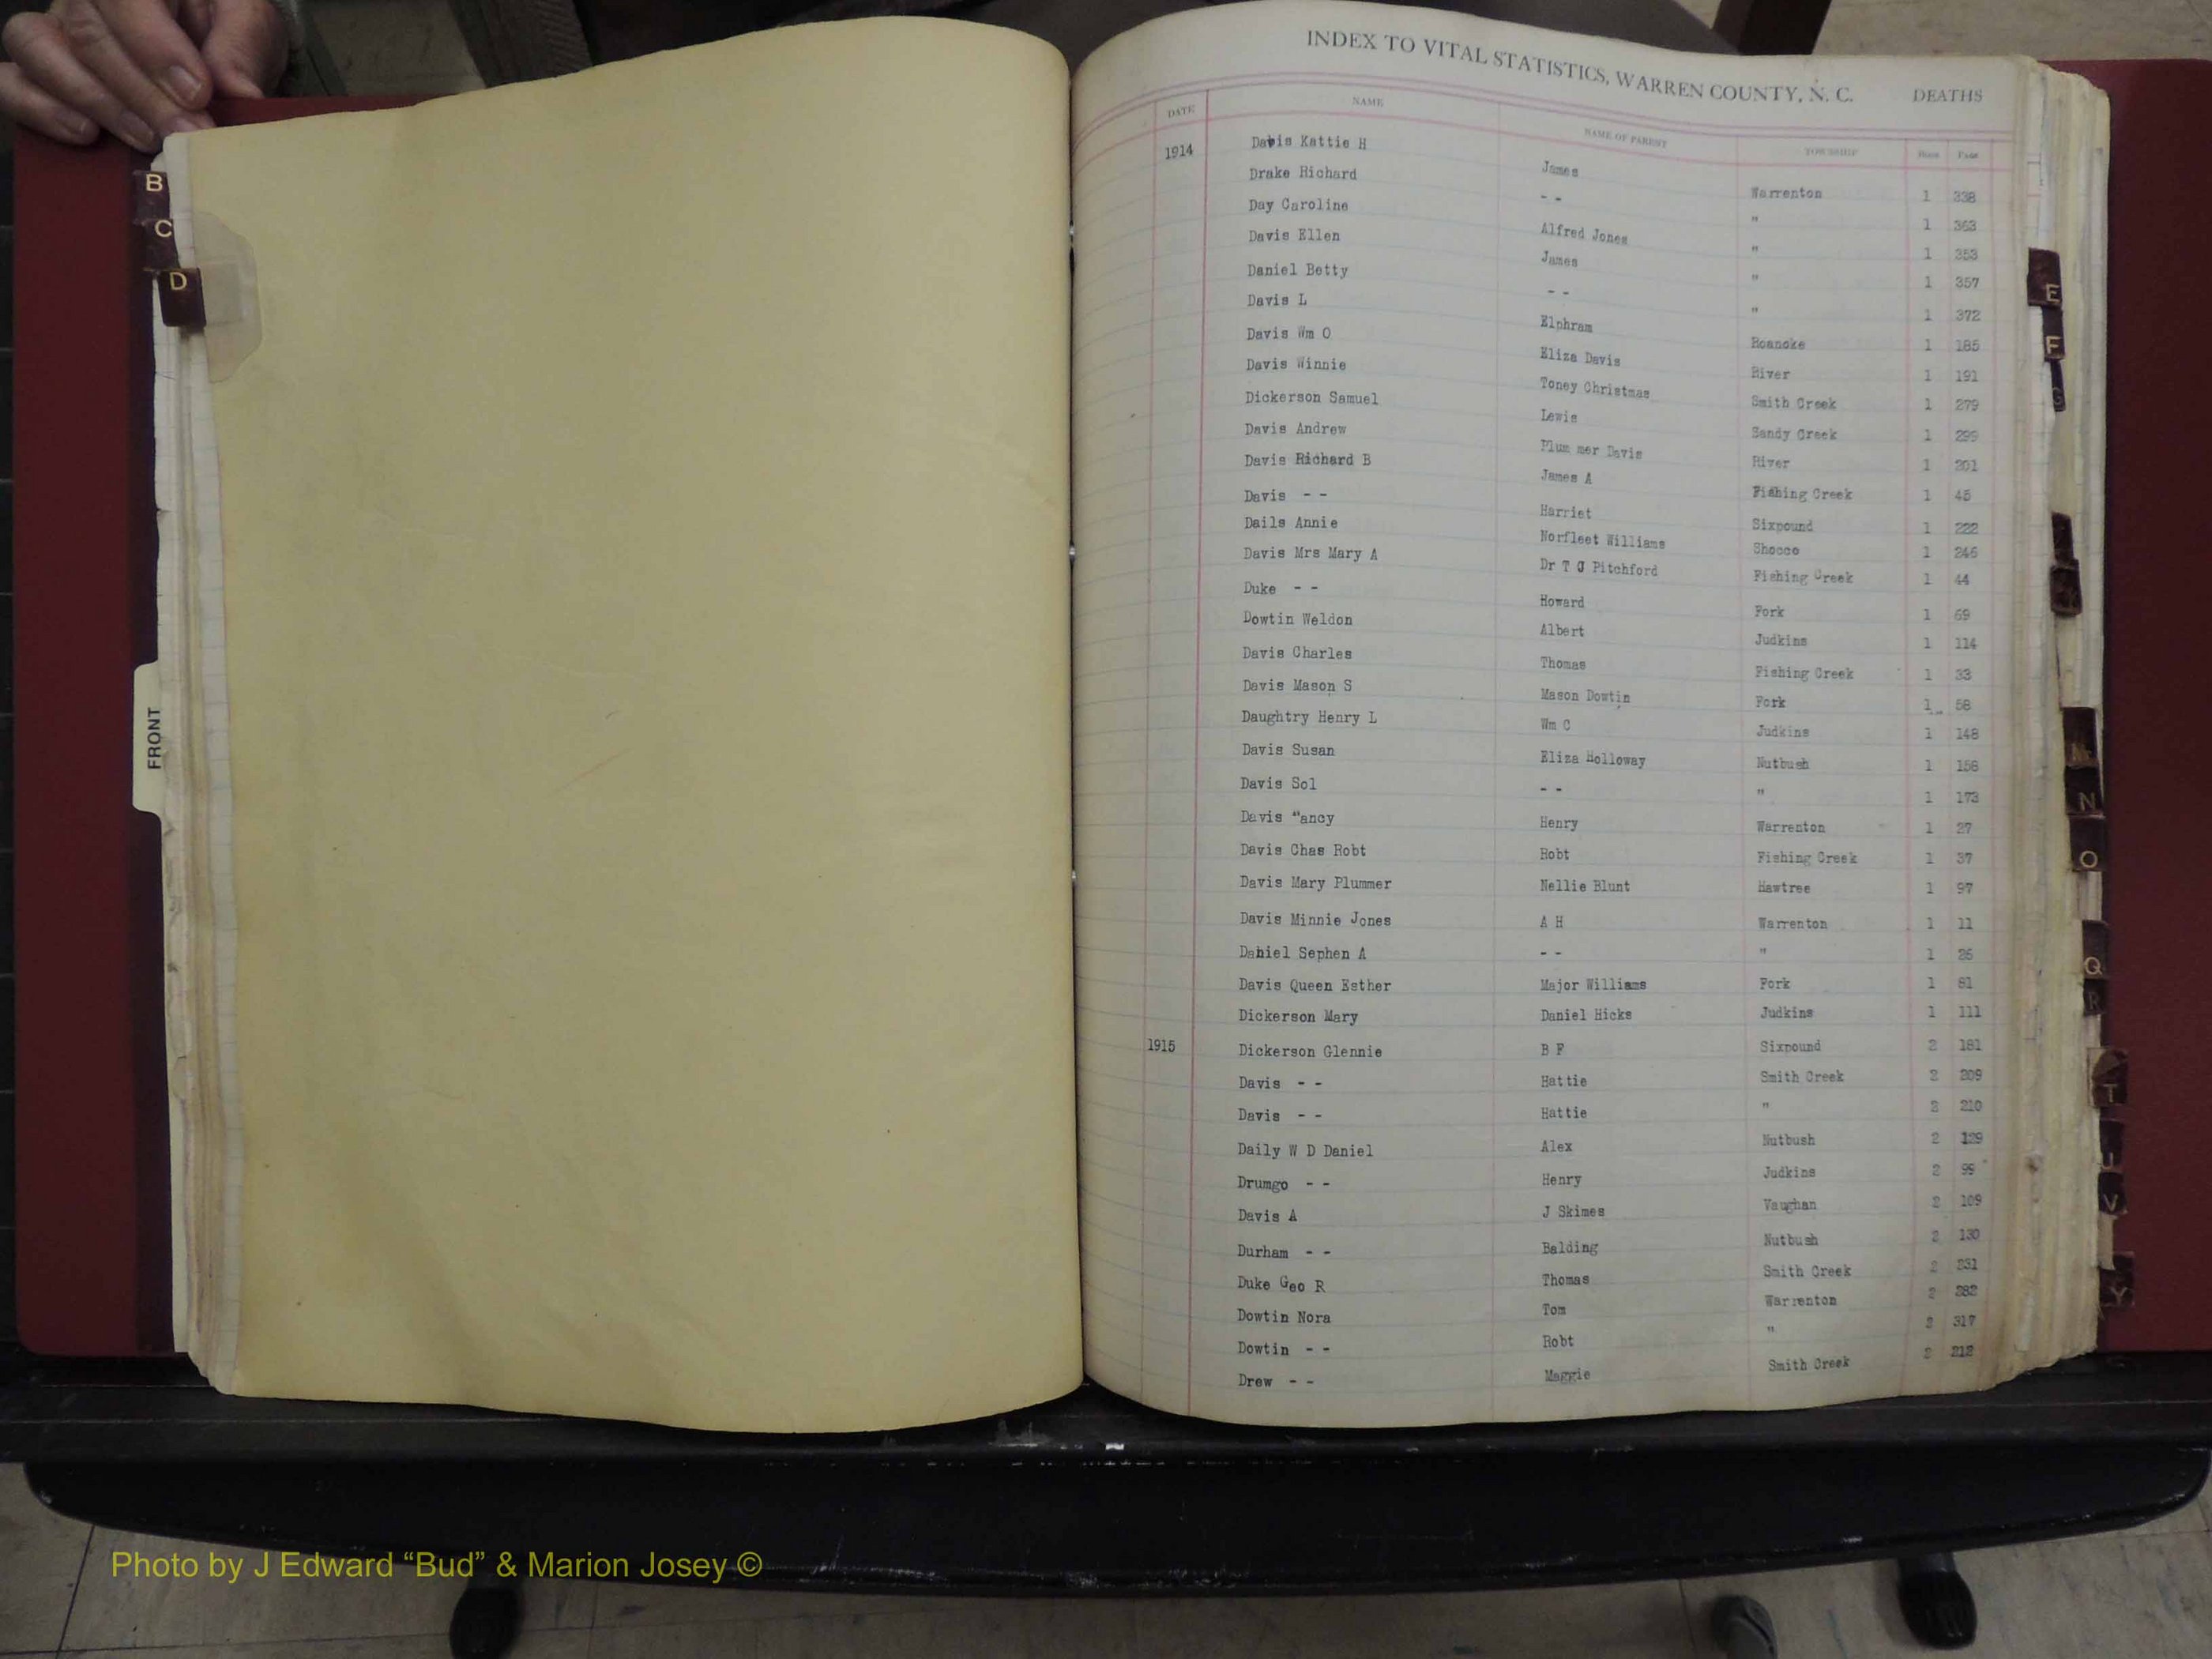 B
C
D
FRONT
INDEX TO VITAL STATISTICS, WARREN COUNTY, N. C. DEATHS
DATE NAME NAME OF PARENT TOWNSHIP Book Page
1914 Davis Kattie H James Warrenton 1 338
Drake Richard - - " 1 363
Day Caroline Alfred Jones " 1 353
Davis Ellen James " 1 357
Daniel Betty - - " 1 372
Davis L Elphram Roanoke 1 185
Davis Wm O Eliza Davis River 1 191
Davis Winnie Toney Christmas Smith Creek 1 279
Dickerson Samuel Lewis Sandy Creek 1 299
Davis Andrew Plum mer Davis River 1 201
Davis Richard B James A Fishing Creek 1 45
Davis - - Harriet Sixpound 1 222
Dails Annie Norfleet Williams Shocco 1 246
Davis Mrs Mary A Dr T J Pitchford Fishing Creek 1 44
Duke - - Howard Fork 1 69
Dowtin Weldon Albert Judkins 1 114
Davis Charles Thomas Fishing Creek 1 33
Davis Mason S Mason Dowtin Fork 1 58
Daughtry Henry L Wm C Judkins 1 148
Davis Susan Eliza Holloway Nutbush 1 156
Davis Sol - - " 1 173
Davis "ancy Henry Warrenton 1 27
Davis Chas Robt Robt Fishing Creek 1 37
Davis Mary Plummer Nellie Blunt Hawtree 1 97
Davis Minnie Jones A H Warrenton 1 11
Daniel Sephen A - - " 1 26
Davis Queen Esther Major Williams Fork 1 81
Dickerson Mary Daniel Hicks Judkins 1 111
1915 Dickerson Glennie B F Sixpound 2 181
Davis - - Hattie Smith Creek 2 209
Davis - - Hattie " 2 210
Daily W D Daniel Alex Nutbush 2 129
Drumgo - - Henry Judkins 2 99
Davis A J Skimes Vaughan 2 109
Durham - - Balding Nutbush 2 130
Duke Geo R Thomas Smith Creek 2 231
Dowtin Nora Tom Warrenton 2 282
Dowtin - - Robt " 2 317
Drew - - Maggie Smith Creek 2 212
E
F
G
N
O
Q
R
T
V
Y
Photo by J Edward “Bud” & Marion Josey ©